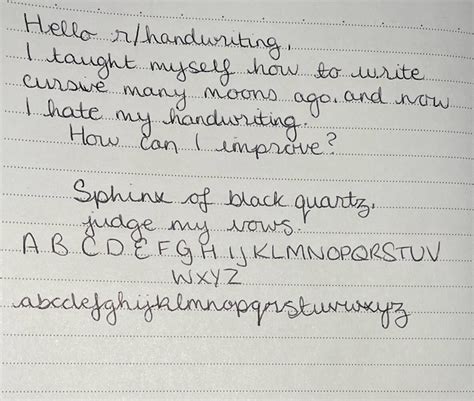 Hello r/handwriting,
I taught myself how to write
cursive many moons ago. and now
I hate my handwriting.
How can I improve?
Sphinx of black quartz,
judge my vows.
A B C D E F G H I J K L M N O P Q R S T U V
W X Y Z
abcdefghijklmnopqrstuvwxyz